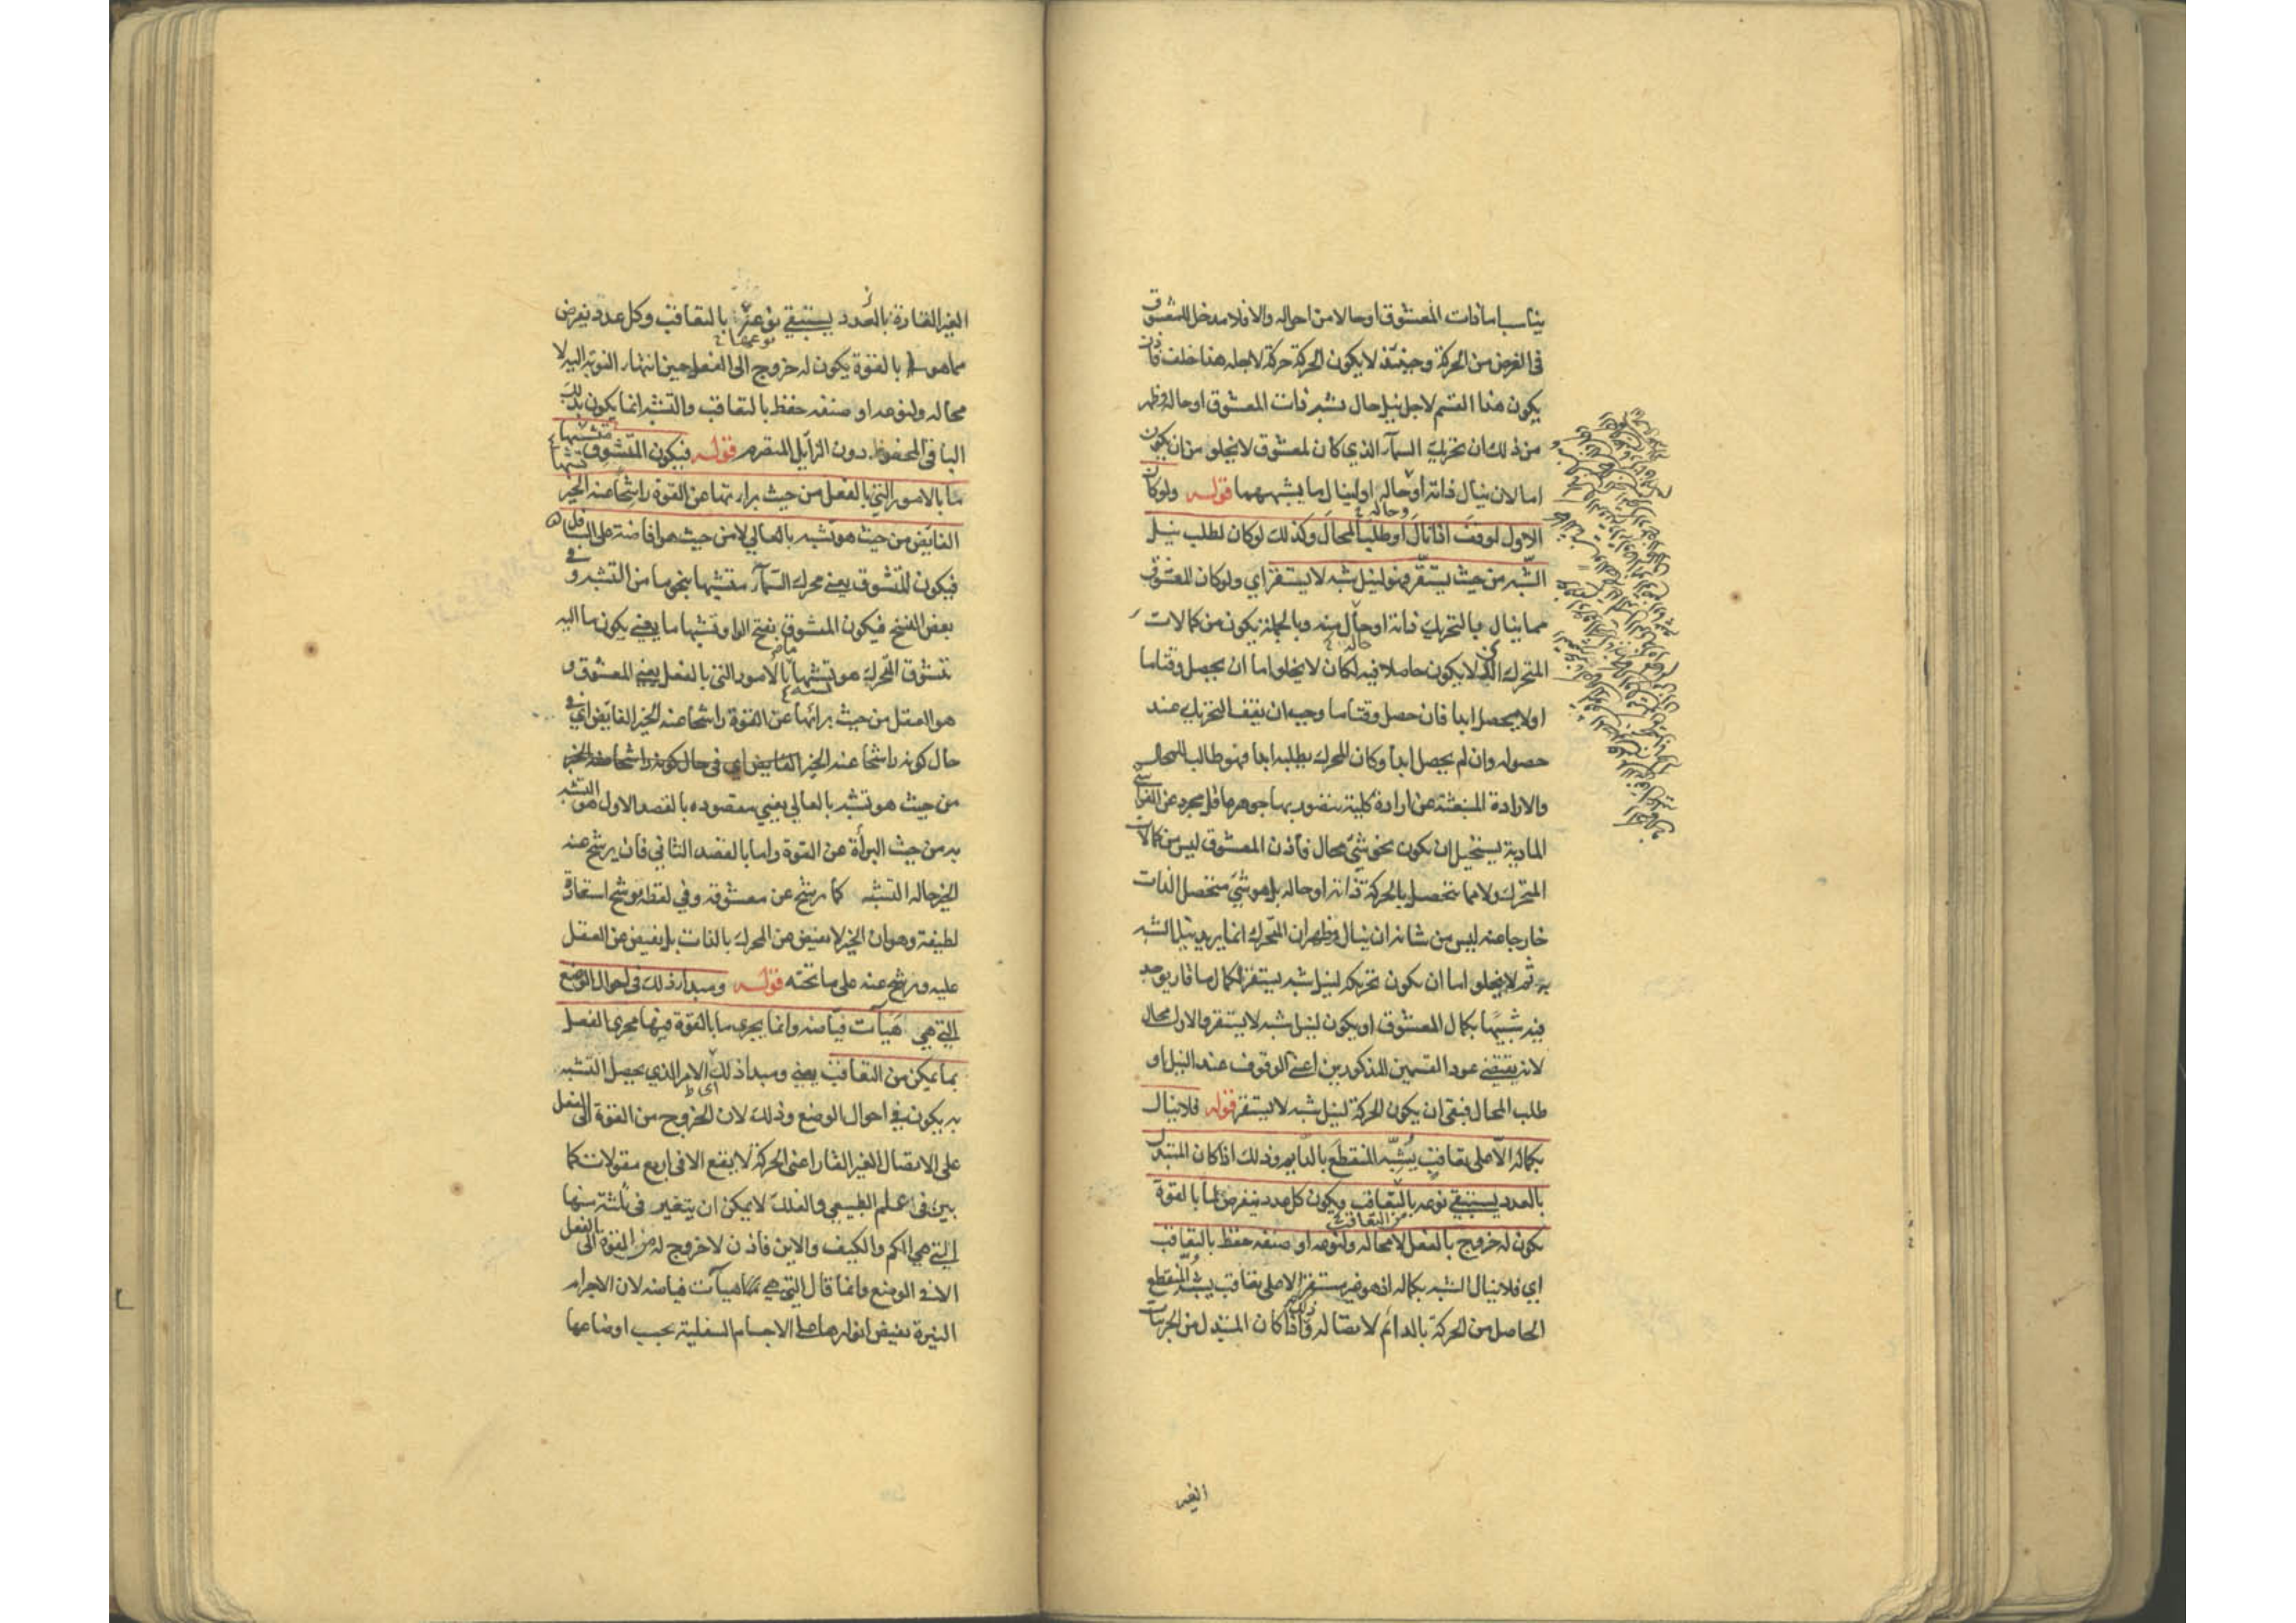 يناسبا ما ذات المعشوق او حالا من احواله والا فلا مدخل للمعشوق
في الغرض من الحركة وحينئذ لا يكون الحركة حركة لاجله هذا خلف فاذن
يكون هذا القسم لاجل نيل حال تشبه ذات المعشوق او حاله وظهر
من ذلك ان تحريك السماء الذي كان لمعشوق لا يخلو من ان يكون
اما لان ينال ذاته او حاله او لينال ما يشبههما قوله ولو كان
وحاله
الاول لوقف اذا نال او طلب المحال وكذلك لو كان لطلب نيل
الشبه من حيث يستقر فهو لنيل شبه لا يستقر اي ولو كان المعشوق
مما ينال بالتحريك ذاته او حال منه وبالجملة يكون من كمالات
حاله
المتحرك الذي لا يكون حاصلا فيه لكان لا يخلو اما ان يحصل وقتا ما
او لا يحصل ابدا فان حصل وقتا ما وجب ان يقف التحريك عند
حصوله وان لم يحصل ابدا وكان المحرك يطلبه ابدا فهو طالب للمحال
والارادة المنبعثة عن ارادة كلية يتصور بها جوهر عاقل مجرد عن الغواشي
المادية يستحيل ان يكون نحو شيء محال فاذن المعشوق ليس من كمالات
المتحرك ولا مما يتحصل بالحركة ذاته او حاله بل هو شيء متحصل الذات
خارجا عنه ليس من شانه ان ينال وظهر ان المتحرك انما يريد نيل التشبه
به ثم لا يخلو اما ان يكون تحريكه لنيل شبه يستقر لكمال ما قار يوجد
فيه شبيها بكمال المعشوق او يكون لنيل شبه لا يستقر والاول محال
لانه يقتضي عود القسمين المذكورين اعني الوقوف عند النيل او
طلب المحال فبقي ان يكون الحركة لنيل شبه لا يستقر قوله فلا ينال
بكماله الا على تعاقب يشبه المنقطع بالدايم وذلك اذا كان المتبدل
بالعدد يستبقي نوعه بالتعاقب ويكون كل عدد يتفرض لما بالقوة
من التعاقب
يكون له خروج بالفعل لا محالة ولنوعه او صنفه حفظ بالتعاقب
اي فلا ينال الشبه بكماله اذ هو غير مستقر الا على تعاقب يشبه المنقطع
الحاصل من الحركة بالدائم لاتصاله وذلك اذا كان المتبدل من الجزئيات
الغير
الغير القارة بالعدد يستبقي نوعه بالتعاقب وكل عدد يفرض
نوعها
مما هو بالقوة يكون له خروج الى الفعل حين انتهاء النوبة اليه لا
محالة ولنوعه او صنفه حفظ بالتعاقب والتشبه انما يكون بذلك
الباقي المحفوظ دون الزايل المتصرم قوله فيكون المتشوق متشبها
تشبها
ما بالامور التي بالفعل من حيث براءتها عن القوة راشحا عنه الخير
الفايض من حيث هو تشبه بالعالي لا من حيث هو افاضة على السافل
فيكون المتشوق يعني محرك السماء متشبها بنحو ما من التشبه وفي
بعض النسخ فيكون المتشوق بفتح الواو تشبها ما يعني يكون ما اليه
يتشوق المحرك هو تشبها ما بالامور التي بالفعل يعني المعشوق و
هو العقل من حيث براءتها عن القوة راشحا عنه الخير الفايض اي في
حال كونه راشحا عنه الخير الفايض اي في حال كونه راشحا عنه الخير
من حيث هو تشبه بالعالي يعني مقصوده بالقصد الاول هو التشبه
به من حيث البرأة عن القوة واما بالقصد الثاني فان يرشح عنه
الخير حاله التشبه كما يرشح عن معشوقه وفي لفظة يرشح استعارة
لطيفة وهو ان الخير لا يفيض من المحرك بالذات بل يفيض عن العقل
عليه ويرشح عنه على ما تحته قوله ومبدأ ذلك في احوال الوضع
التي هي هيآت فياضة وانما يجري ما بالقوة فيها مجرى الفعل
بما يمكن من التعاقب يعني ومبدأ ذلك الامر الذي يحصل التشبه
اي
به يكون في احوال الوضع وذلك لان الخروج من القوة الى الفعل
على الاتصال الغير القار اعني الحركة لا يقع الا في اربع مقولات كما
بين في العلم الطبيعي والفلك لا يمكن ان يتغير في ثلثة منها
التي هي الكم والكيف والاين فاذن لا خروج له من القوة الى الفعل
الا في الوضع وانما قال التي هي هيآت فياضة لان الاجرام
النيرة تفيض انوارها على الاجسام السفلية بحسب اوضاعها